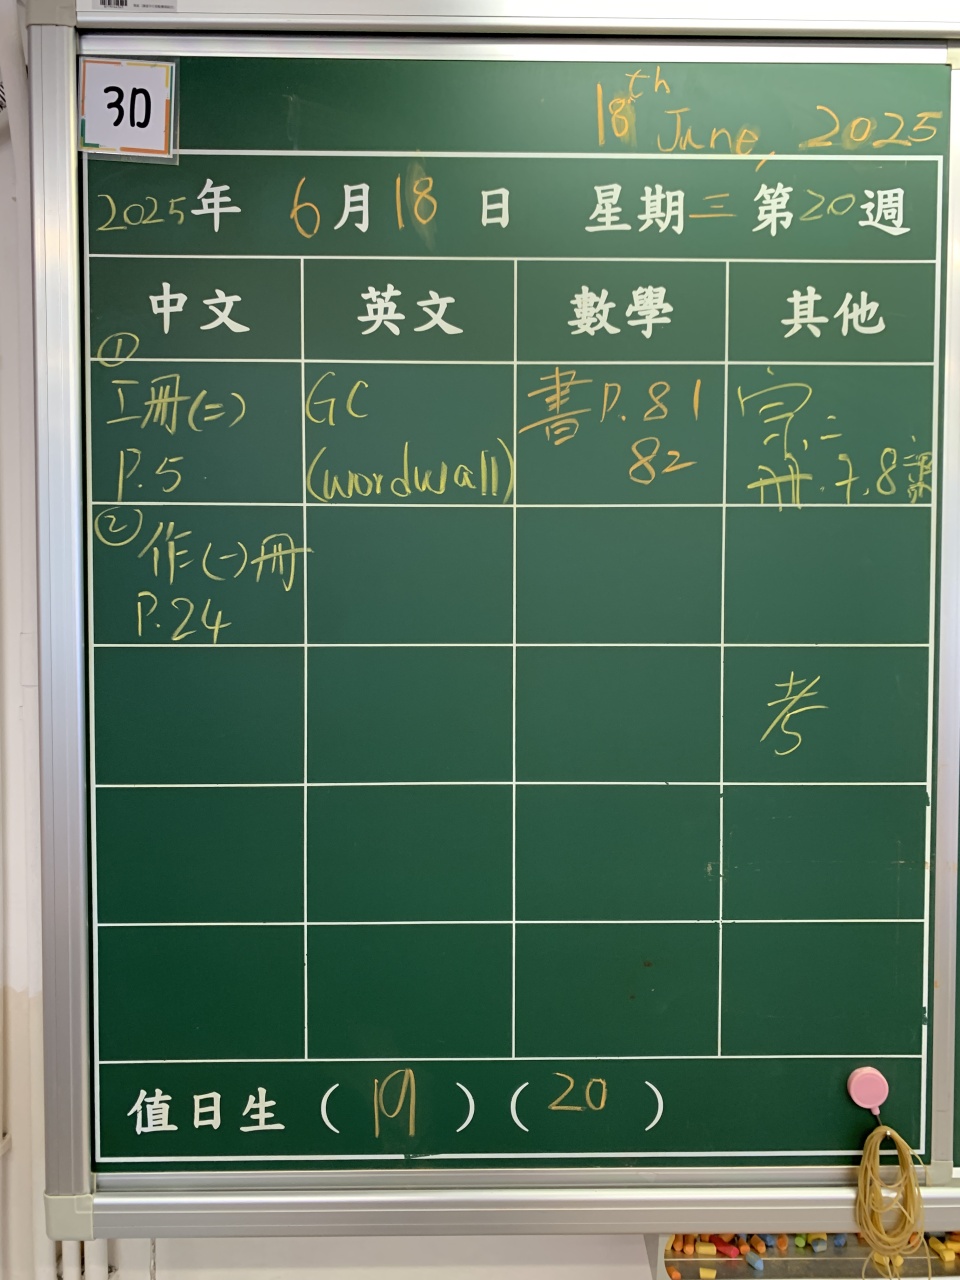 3D
18th June, 2025
2025年 6月18日 星期三 第20週
中文 英文 數學 其他
①
工冊(二)
P.5
GC
(wordwall)
書P.81
82
宗.二
冊.7,8課
②
作(一)冊
P.24
考
值日生(19)(20)